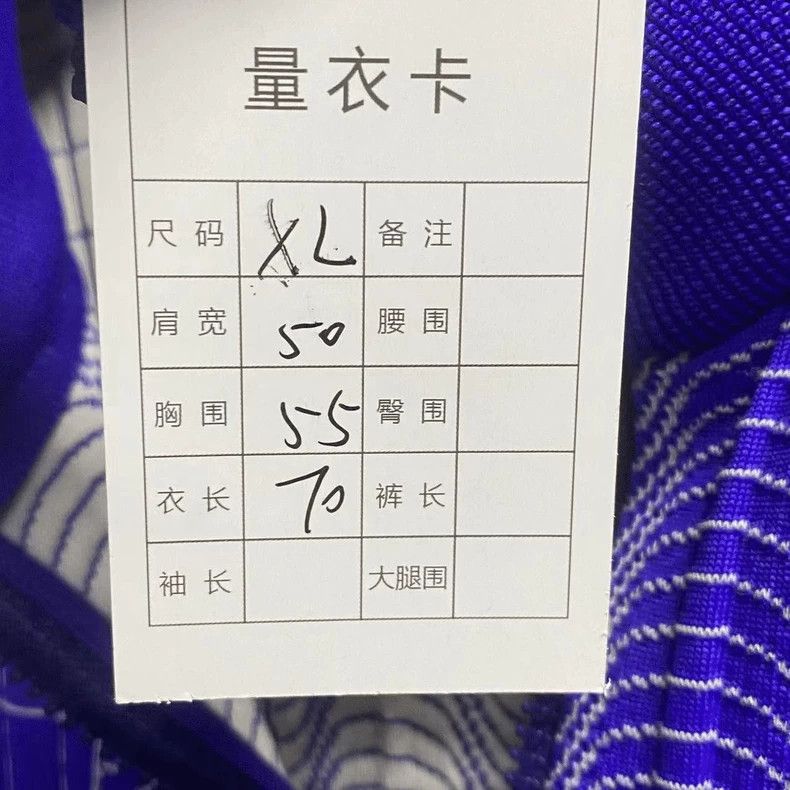 量衣卡
尺码 XL 备注
肩宽 50 腰围
胸围 55 臀围
衣长 70 裤长
袖长 大腿围